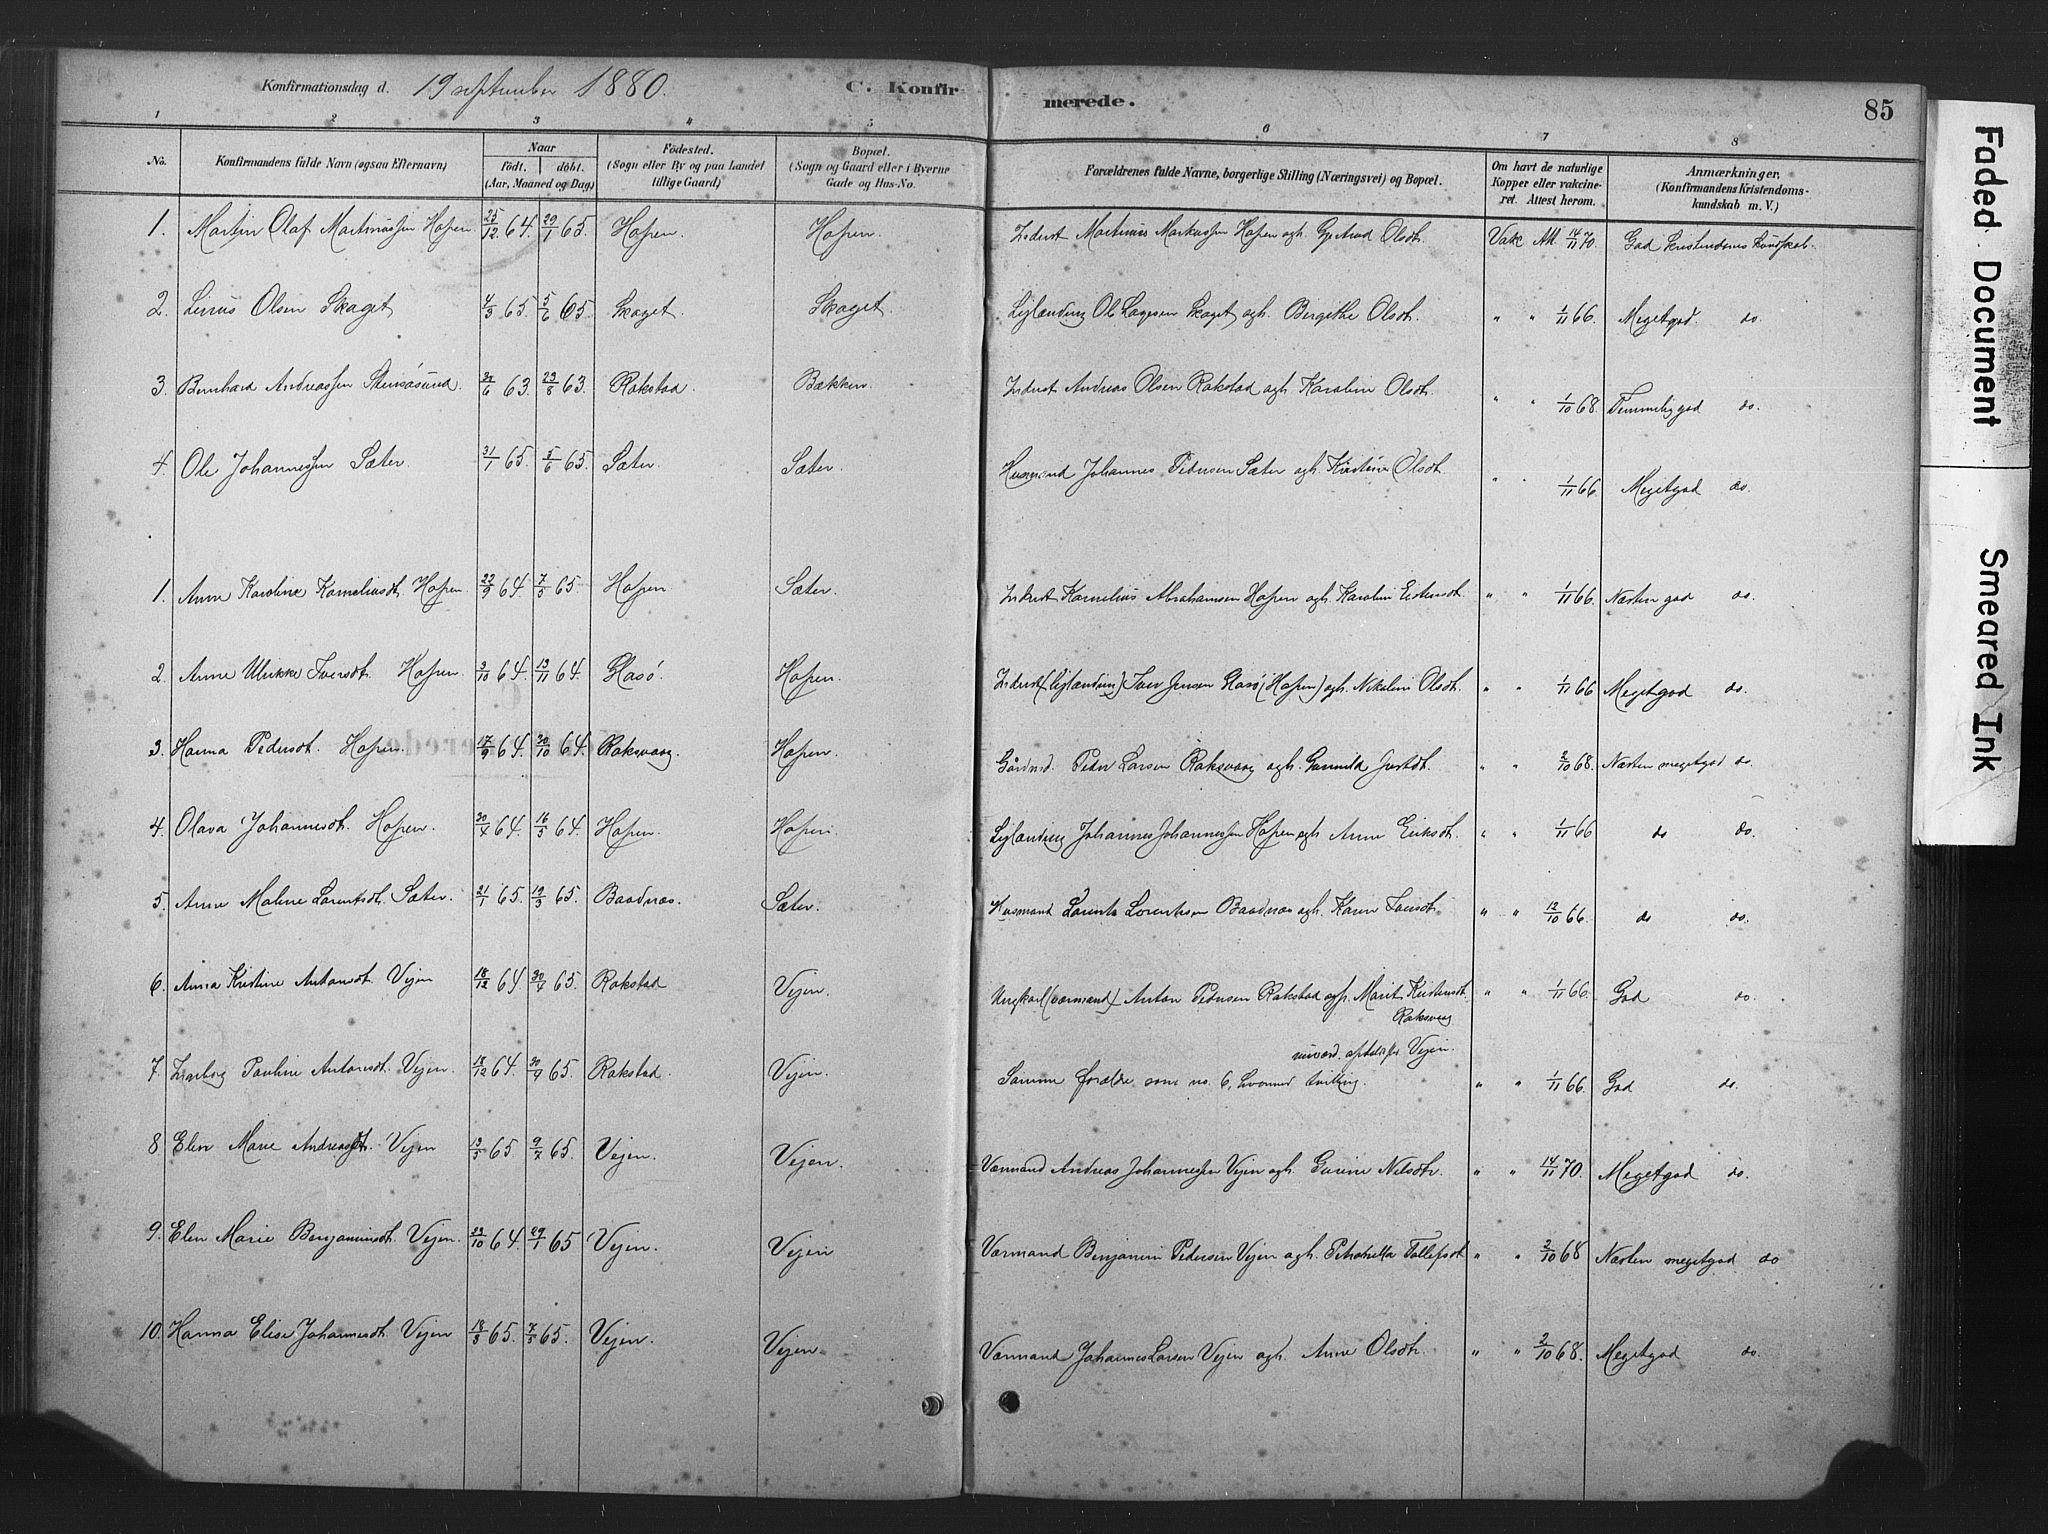 Konfirmationsdag d. 19 september 1880. C. Konfirmerede. 85
1 2 3 4 5 6 7 8
No. Konfirmandens fulde Navn (ogsaa Efternavn) Naar Födt. döbt. (Aar, Maaned og Dag) Födested. (Sogn eller By og paa Landet tillige Gaard) Bopæl. (Sogn og Gaard eller i Byerne Gade og Hus-No. Forældrenes fulde Navne, borgerlige Stilling (Næringsvei) og Bopæl. Om havt de naturlige Kopper eller vakcineret. Attest herom. Anmærkninger. (Konfirmandens Kristendomskundskab m. V.)
1. Martin Olaf Martinussen Hopen 25/12 64. 29/1 65. Hopen. Hopen. Inderst Martinus Markussen Hopen ogh. Gjertrud Olsdt. Vakc Att 14/11 70. God kristendoms kundskab.
2. Linus Olsen Skaget 4/3 65. 5/6 65. Skaget. Skaget. Lejlænding Ole Skaget ogh. Bergithe Olsdt. " " 1/11 66. Megetgod. do.
3. Bernhard Andreassen 6 63. 23/8 63. Rokstad Bakken. Inderst Andreas Olsen Rokstad ogh. Karoline Olsdt. " " 1/10 68. Temmelig god do.
4. Ole Johannessen Sæter. 31/1 65. 5/6 65. Sæter. Sæter. Husmand Johannes Pedersen Sæter ogh. Olsdt. " " 1/11 66. Megetgod do.
1. Anne Karoline Korneliusdt. Hopen. 22/9 64. 7/5 65. Hopen Sæter. Inderst Kornelius Abrahamsen Hopen ogh. Karoline " " 1/11 66. Næsten god do.
2. Anne Ulrikke Iversdt. Hopen. 3/10 64. 13/11 64. Glasö. Hopen. Inderst (Lejlænding) Iver Jensen Glasö (Hopen) ogh. Nikoline Olsdt. " " 1/11 66 Megetgod do.
3. Hanna Pedersdt. Hopen. 17/9 64. 30/10 64. Roksvaag. Hopen. Peder Larsen Roksvaag ogh. Gunnild " " 2/10 68. Næsten megetgod do.
4. Olava Johannesdt. Hopen. 30/4 64. 16/5 64. Hopen. Hopen. Lejlænding Johannes Johannessen Hopen ogh Anne Eriksdt. " " 1/11 66 do do.
5. Anne Maline Lorentsdt. Sæter. 21/1 65. 19/3 65. Baadnæs. Sæter. Husmand Lorents Lorentsen Baadnæs ogh. Karen Iversdt. " " 12/10 66. do do.
6. Anna Kristine Antonsdt. Vejen 18/12 64 30/4 65. Rokstad Vejen. Ungkarl (værmand) Anton Pedersen Rokstad ogp. Marit Kristensdt. " " 1/11 66. God do.
Roksvaag
Vejen.
7. Ingeborg Pauline Antonsdt. Vejen. 18/12 64. 30/4 65. Rokstad. Vejen. Samme forældre, som no. 6, hvormed tvilling. " " 1/11 66. God do.
8 Elen Marie Andreasdt. Vejen 13/5 65. 9/7 65. Vejen. Vejen. Værmand Andreas Johannessen Vejen ogh. Gurine Nilsdt. " " 14/11 70. Megetgod do.
9. Elen Marie Benjaminsdt. Vejen. 23/10 64. 29/1 65 Vejen. Vejen Værmand Benjamin Pedersen Vejen ogh. Petronella Tollefsdt " " 2/10 68 Næsten megetgod do
10. Hanna Elise Johannesdt. Vejen 18/3 65. 7/5 65. Vejen. Vejen. Værmand Johannes Larsen Vejen ogh. Anne Olsdt. " " 2/10 68. Megetgod do.
Faded Document
Smeared Ink